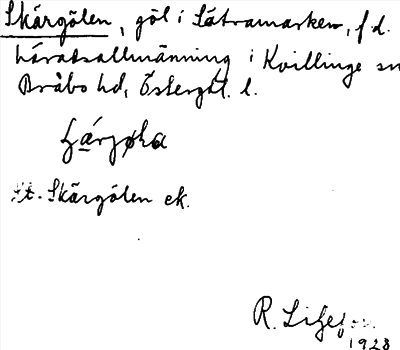 Skärgölen, göl i Sätramarken, f d.
häradsallmänning i Kvillinge sn
Bråbo hd, Östergtl. l.
St. Skärgölen ek.
R. Liljef
1928